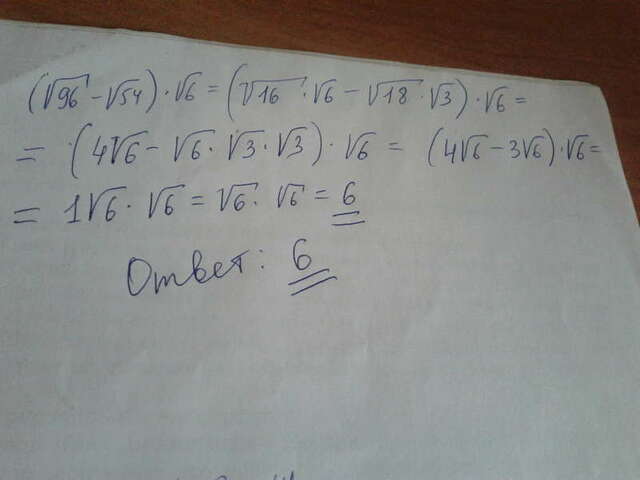 (√96 - √54) · √6 = (√16 · √6 - √18 · √3) · √6 =
= (4√6 - √6 · √3 · √3) · √6 = (4√6 - 3√6) · √6 =
= 1√6 · √6 = √6 · √6 = 6
Ответ: 6